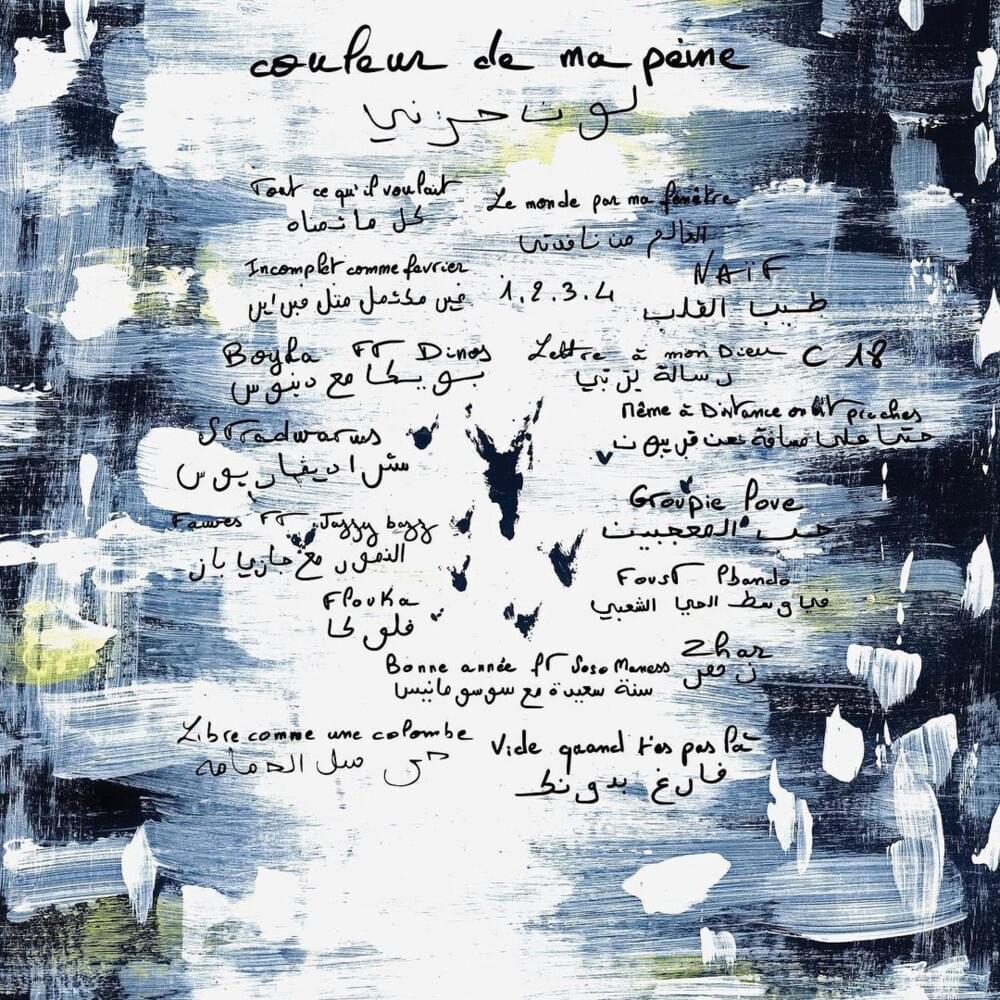 couleur de ma peine
لون حزني
Tout ce qu'il voulait
كل ما تمناه
Le monde par ma fenêtre
العالم من نافذتي
Incomplet comme fevrier
غير مكتمل مثل فبراير
1.2.3.4
NAïF
طيب القلب
Boyka FT Dinos
بويكا مع دينوس
Lettre à mon Dieu
رسالة لربي
C 18
Même à Distance on est proches
حتا على مسافة نحن قريبون
Stradivarius
ستراديفاريوس
Groupie Love
حب المعجبين
Fauves FT Jazzy bazz
النمور مع جازيا باز
Foust Lbando
في وسط الحي الشعبي
Flouka
فلوكا
Zhar
زهر
Bonne année ft Soso Maness
سنة سعيدة مع سوسو مانيس
Libre comme une colombe
حر مثل الحمامة
Vide quand t'es pas là
فارغ بدونك